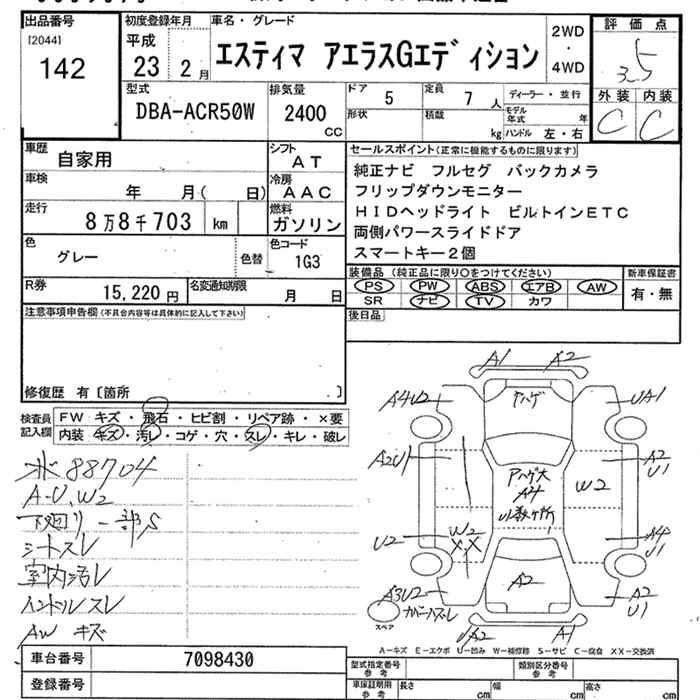 出品番号
[2044]
142
初度登録年月
平成
23 2月
車名・グレード
エスティマ アエラスGエディション
2WD
・
4WD
評価点
3.5
外装 内装
C C
型式
DBA-ACR50W
排気量
2400
CC
ドア
5
定員
7人
ディーラー・並行
形状
積載
kg
モデル年式
年
ハンドル 左・右
車歴
自家用
シフト
AT
車検
年 月( 日)
冷房
AAC
走行
8万8千703 km
燃料
ガソリン
色
グレー
色替
色コード
1G3
R券
15,220円
名変通知期限
月 日
セールスポイント(正常に機能するものに限ります)
純正ナビ フルセグ バックカメラ
フリップダウンモニター
HIDヘッドライト ビルトインETC
両側パワースライドドア
スマートキー2個
装備品 (純正品に限り○をつけてください)
PS PW ABS エアB AW
SR ナビ TV カワ
新車保証書
有・無
後日品
注意事項申告欄(不具合内容等は具体的に記入して下さい)
修復歴 有〔箇所 〕
検査員記入欄
FW キズ・飛石・ヒビ割・リペア跡・×要
内装 キズ・汚レ・コゲ・穴・スレ・キレ・破レ
88704
A-U,W2
下廻り一部S
シートスレ
室内汚レ
ハンドルスレ
AW キズ
A1 A2
A4U2 アハゲ UA1
A2U1 A2 U1
アハゲ大 W2
A4
U数ヶ所
U2 W2 A4 U1
X,X
A3U2 A2 A2 U1
カバーハズレ
スペア
UA2 A1
A-キズ E-エクボ U-凹み W-補修跡 S-サビ C-腐食 XX-交換済
車台番号
7098430
登録番号
型式指定番号
参考
類別区分番号
参考
車庫証明用
参考
長さ cm
幅 cm
高さ cm